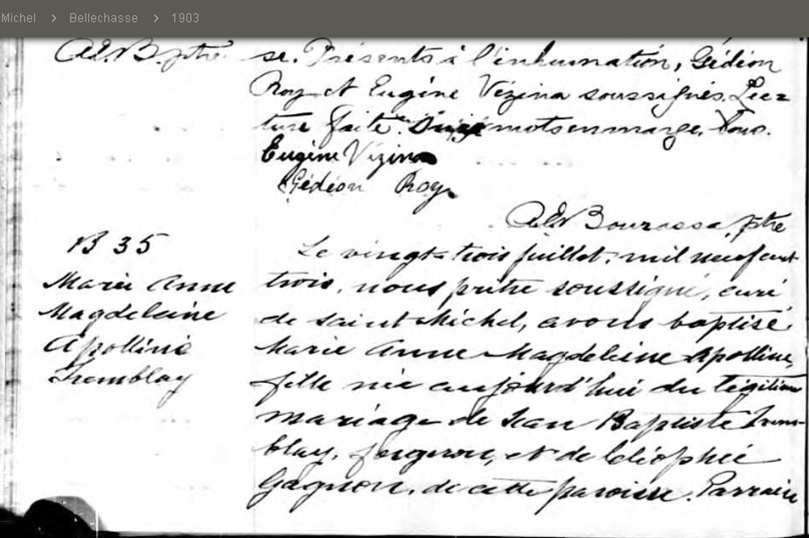 Michel > Bellechasse > 1903
A.E.B. ptre se. Présents à l'inhumation, Gédéon
Roy et Eugène Vézina soussignés. Lec-
ture faite. mots en marge, bons.
Eugène Vézina
Gédéon Roy
A.E. Bourassa, ptre
B 35
Marie Anne
Magdeleine
Apolline
Tremblay
Le vingt-trois juillet, mil neuf cent
trois, nous prêtre soussigné, curé
de saint Michel, avons baptisé
Marie Anne Magdeleine Apolline,
fille née aujourd'hui du légitime
mariage de Jean Baptiste Trem-
blay, forgeron, et de Cléophée
Gagnon, de cette paroisse. Parrain